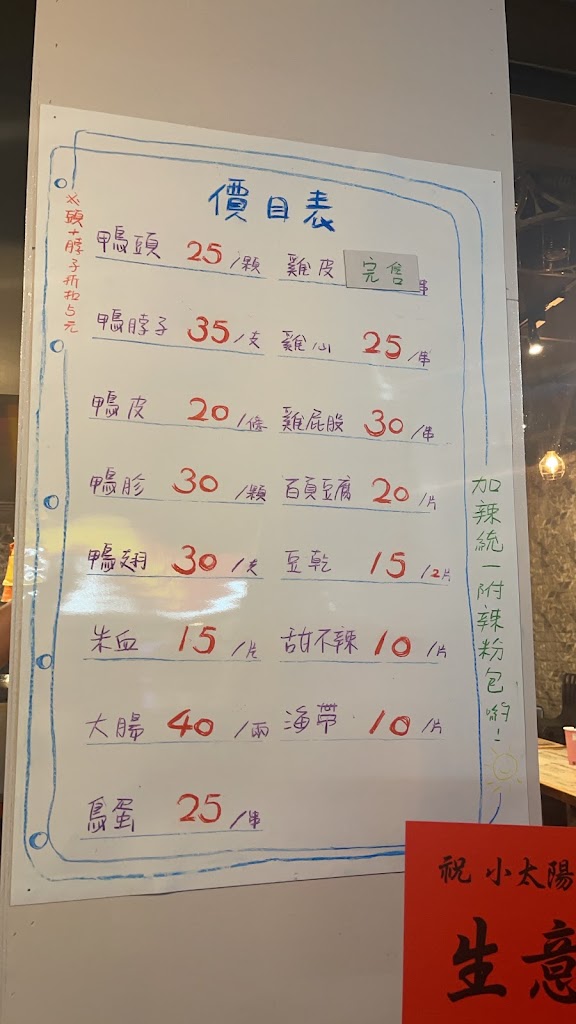 價目表
※頭+脖子折扣5元
鴨頭 25/顆
鴨脖子 35/支
鴨皮 20/條
鴨胗 30/顆
鴨翅 30/支
米血 15/片
大腸 40/兩
鳥蛋 25/串
雞皮 完售 串
雞心 25/串
雞屁股 30/串
百頁豆腐 20/片
豆乾 15/2片
甜不辣 10/片
海帶 10/片
加辣統一附辣粉包喲!
祝 小太陽
生意